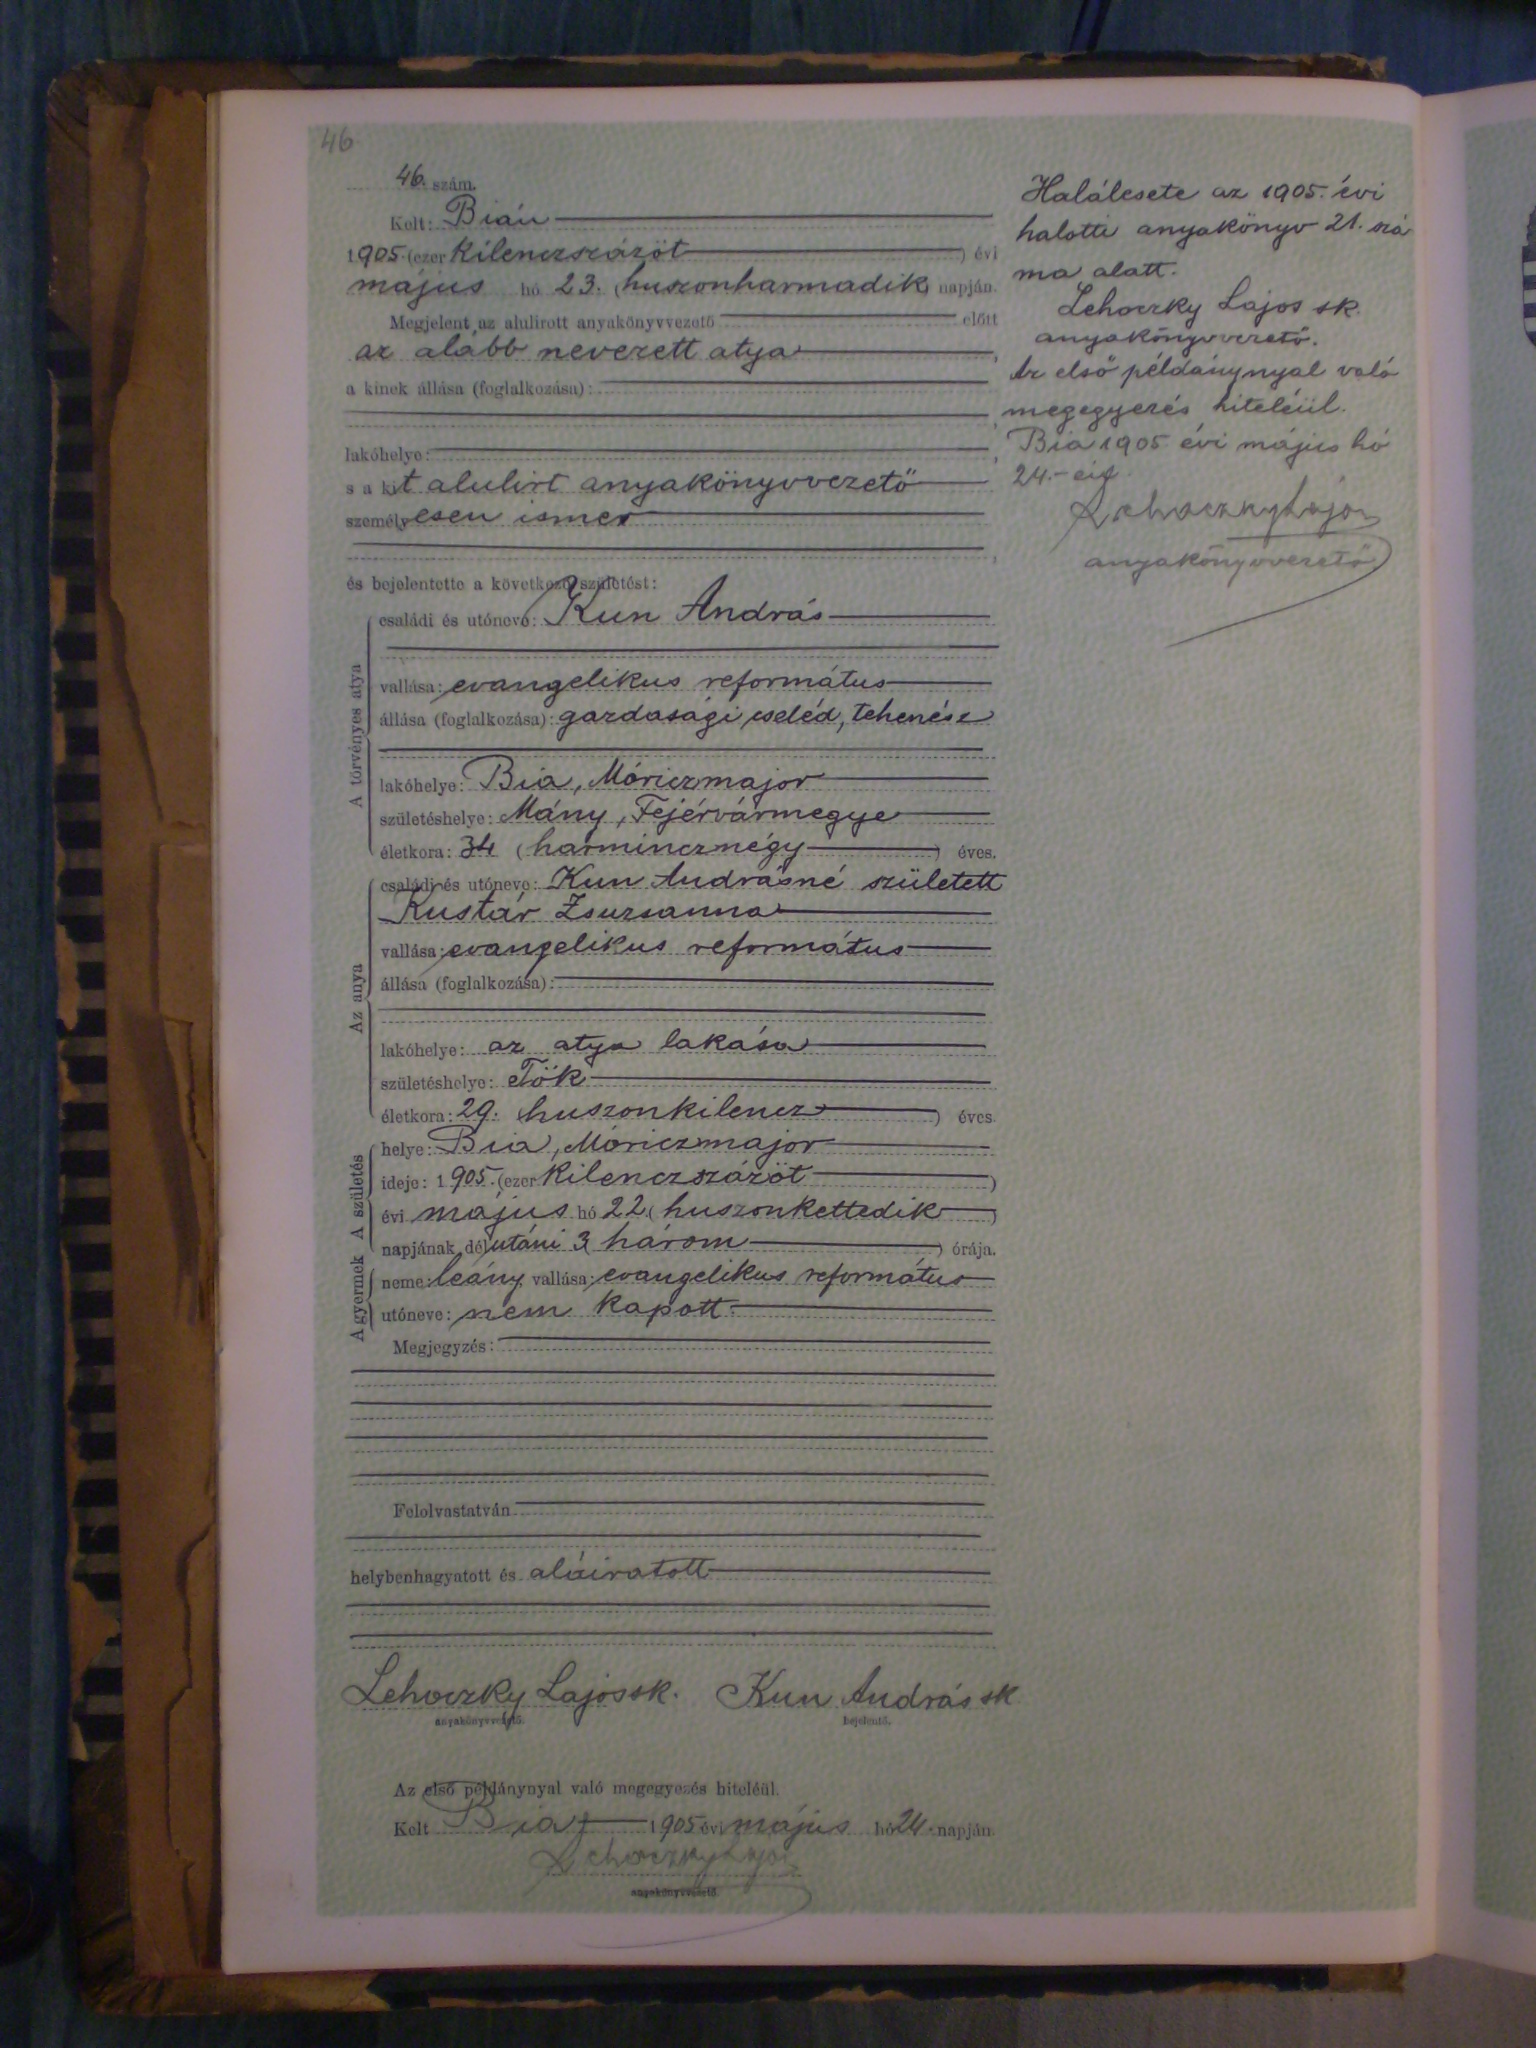 46
46. szám.
Kelt: Bián
1905. (ezer kilenczszázöt) évi
május hó 23. (huszonharmadik) napján.
Megjelent az alulirott anyakönyvvezető előtt
az alább nevezett atya,
a kinek állása (foglalkozása):
lakóhelye:
s a kit alulirt anyakönyvvezető
személyesen ismer
és bejelentette a következő születést:
A törvényes atya
családi és utóneve: Kun András
vallása: evangelikus református
állása (foglalkozása): gazdasági cseléd, tehenész
lakóhelye: Bia, Móriczmajor
születéshelye: Mány, Fejérvármegye
életkora: 34 (harmincznégy) éves.
Az anya
családi és utóneve: Kun Andrásné született
Kustár Zsuzsanna
vallása: evangelikus református
állása (foglalkozása):
lakóhelye: az atya lakása
születéshelye: Tök
életkora: 29. (huszonkilencz) éves.
A születés
helye: Bia, Móriczmajor
ideje: 1905. (ezer kilenczszázöt)
évi május hó 22. (huszonkettedik)
napjának délutáni 3 (három) órája.
A gyermek
neme: leány, vallása: evangelikus református
utóneve: nem kapott.
Megjegyzés:
Felolvastatván
helybenhagyatott és aláiratott
Lehoczky Lajos sk. Kun András sk
anyakönyvvezető. bejelentő.
Az első példánynyal való megegyezés hiteléül.
Kelt Bia, 1905 évi május hó 24. napján.
Lehoczky Lajos
anyakönyvvezető.
Halálesete az 1905. évi
halotti anyakönyv 21. szá
ma alatt.
Lehoczky Lajos sk.
anyakönyvvezető.
Az első példánynyal való
megegyezés hiteléül.
Bia 1905 évi május hó
24.-én
Lehoczky Lajos
anyakönyvvezető